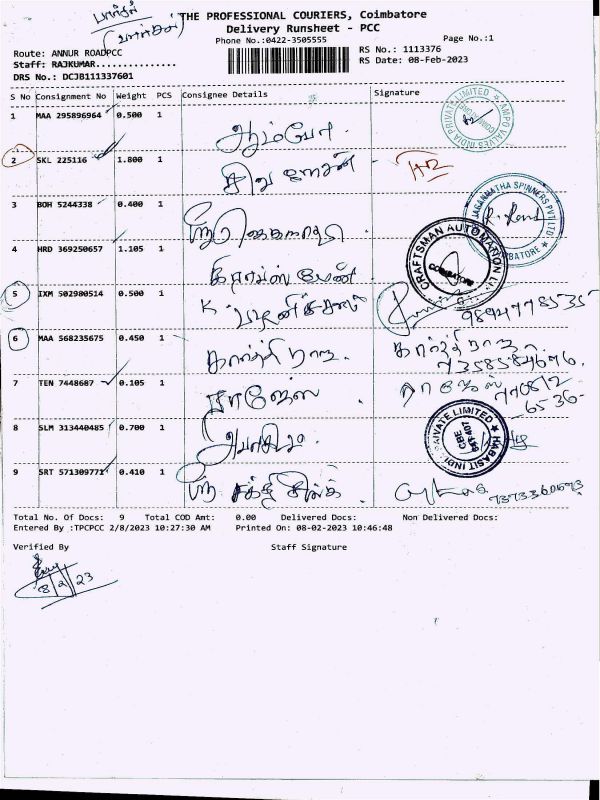 பார்சல்
(பார்சல்)
THE PROFESSIONAL COURIERS, Coimbatore
Delivery Runsheet - PCC
Phone No.:0422-3505555
Page No.:1
Route: ANNUR ROADPCC
RS No.: 1113376
Staff: RAJKUMAR...............
RS Date: 08-Feb-2023
DRS No.: DCJB111337601
S No Consignment No Weight PCS Consignee Details Signature
1 MAA 295896964 0.500 1 ஆம்போ
AMPO VALVES INDIA PRIVATE LIMITED
COIMBATORE
2 SKL 225116 1.800 1
3 BOH 5244338 0.400 1 ஸ்ரீ
JAGANNATHA SPINNERS PVT LTD
COIMBATORE
4 HRD 369250657 1.105 1
CRAFTSMAN AUTOMATION LI.
COIMBATORE
5 IXM 502980514 0.500 1 K. பழனிச்சாமி
9894778535
6 MAA 568235675 0.450 1 கார்த்தி ராஜா. கார்த்தி ராஜா
7358584676.
7 TEN 7448687 0.105 1 ராஜேஸ் ராஜேஸ் 770812
-6536-
8 SLM 313440485 0.700 1
HABASIT INDIA PRIVATE LIMITED
CBE
9 SRT 571309771 0.410 1 ஸ்ரீ சக்தி
7373360673
Total No. Of Docs: 9 Total COD Amt: 0.00 Delivered Docs: Non Delivered Docs:
Entered By :TPCPCC 2/8/2023 10:27:30 AM Printed On: 08-02-2023 10:46:48
Verified By Staff Signature
8/2/23